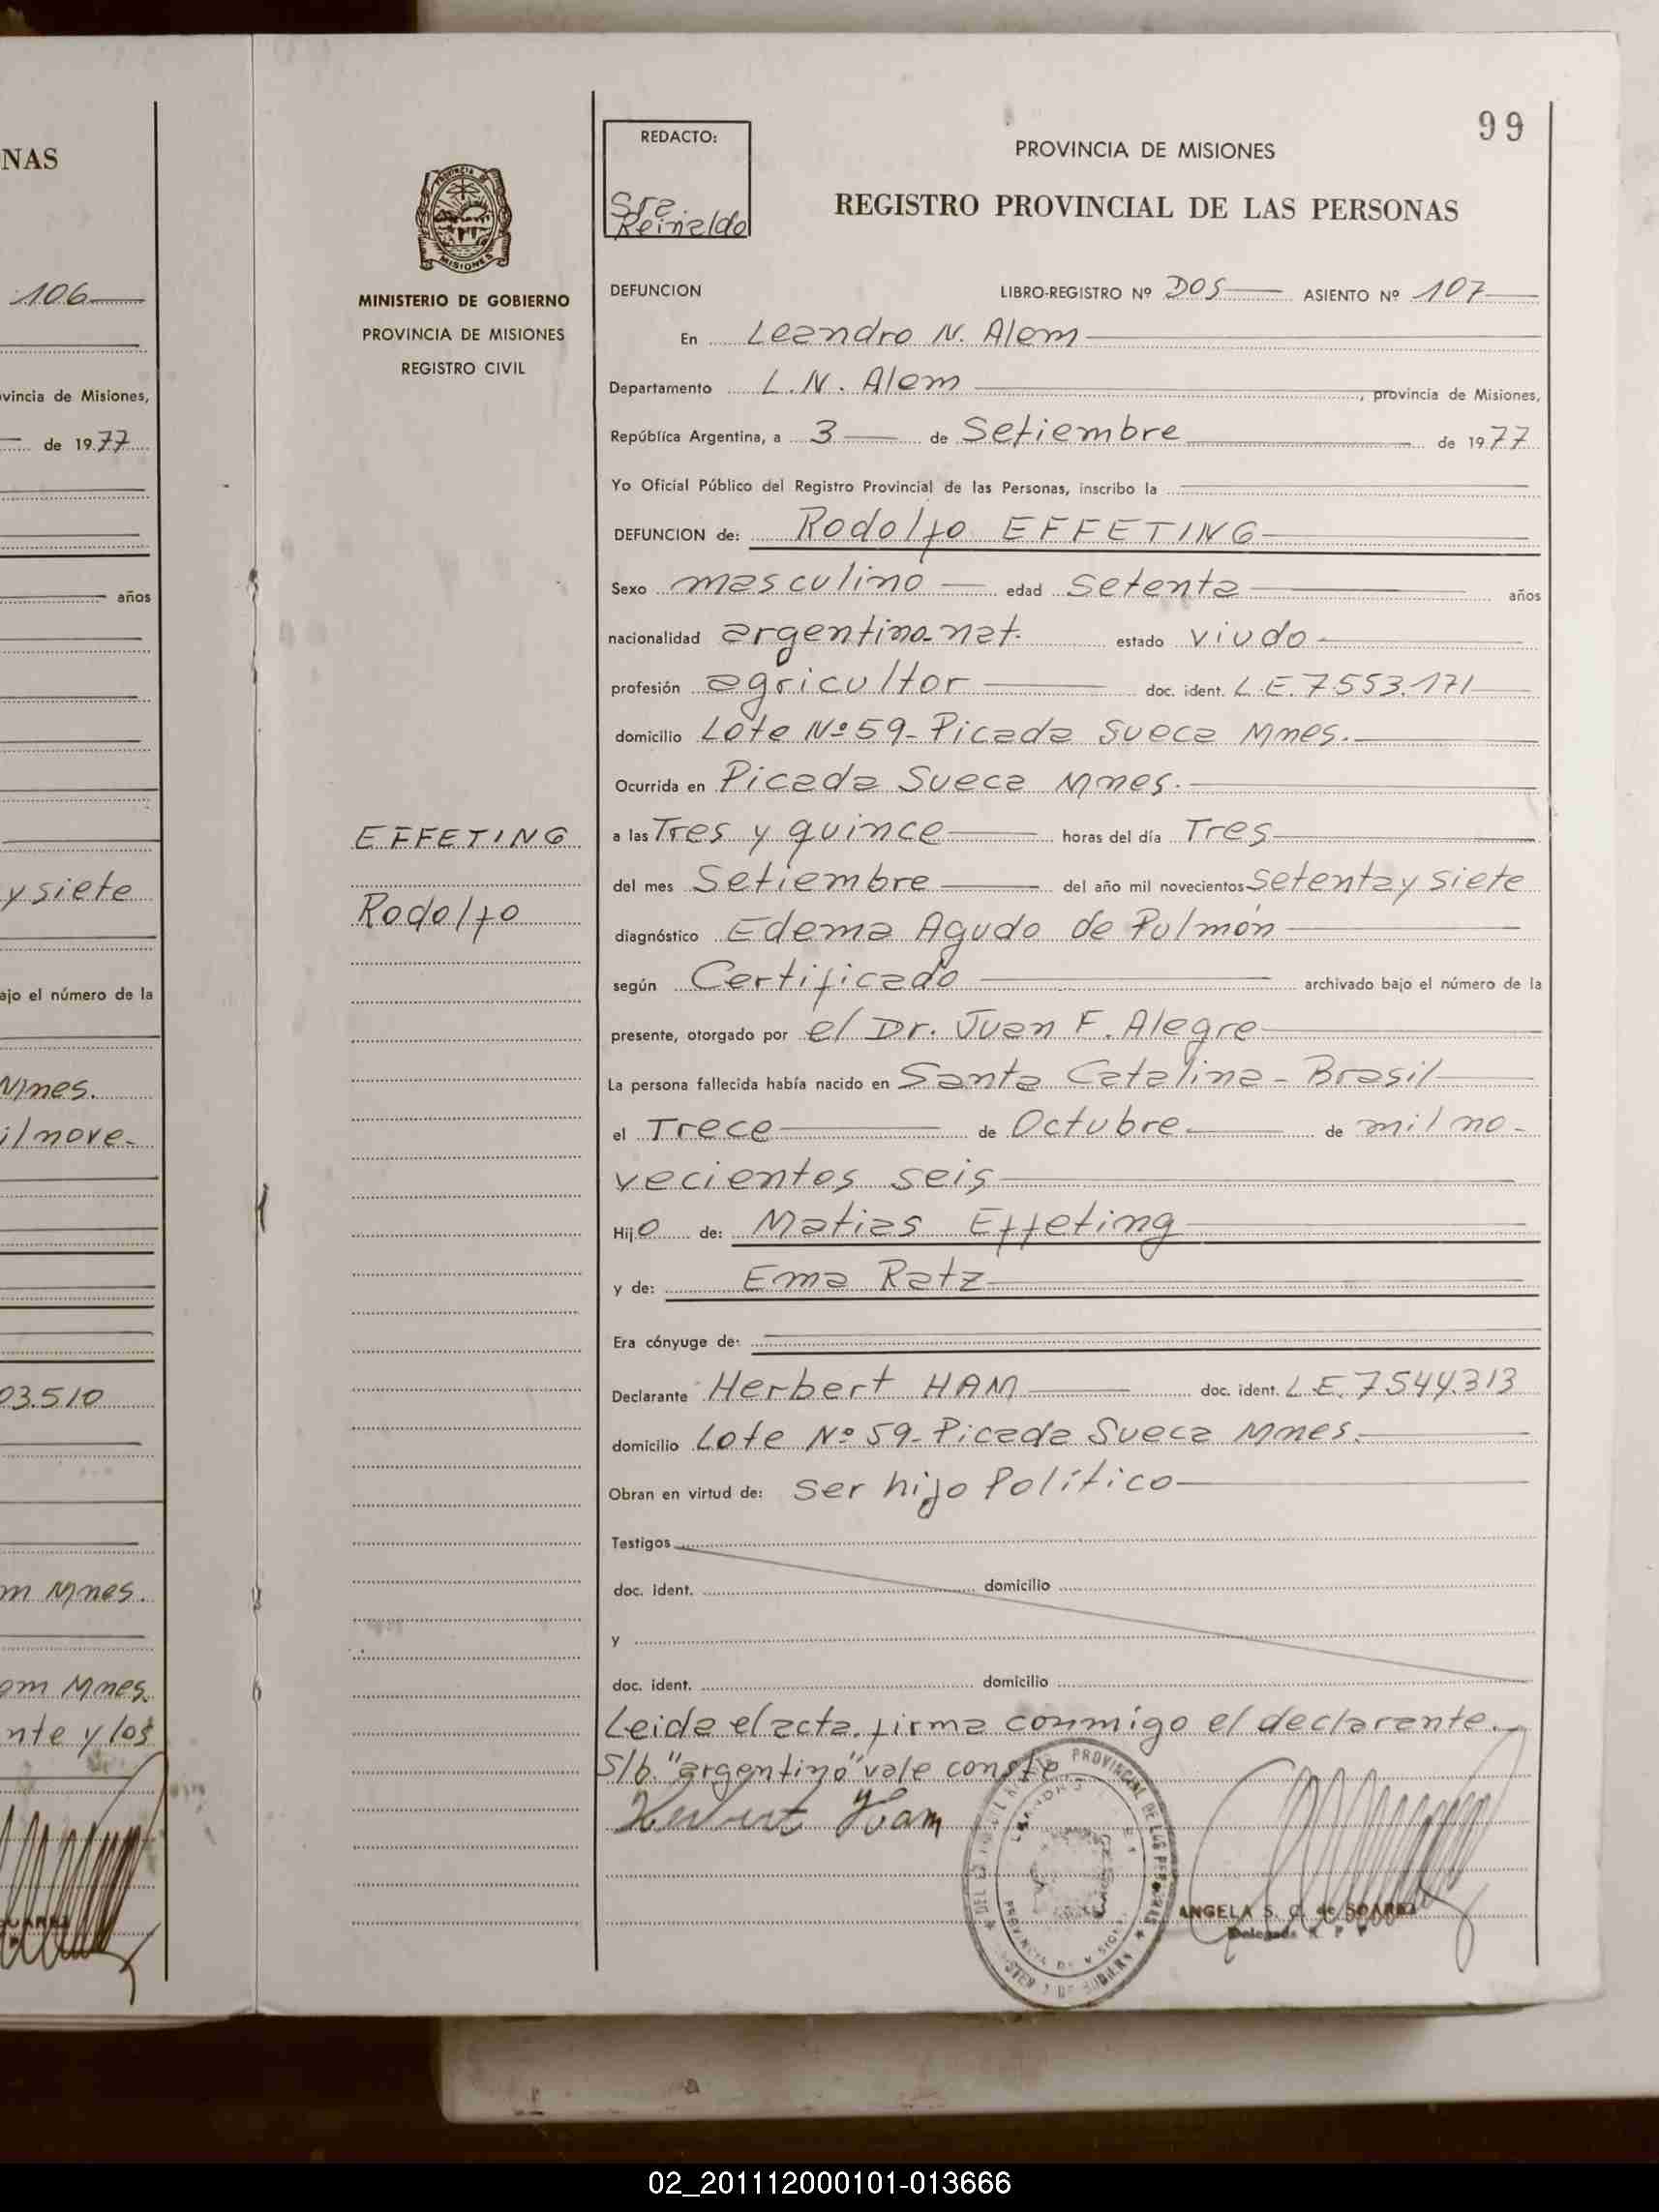 NAS
106
vincia de Misiones,
de 1977
años
y siete
ajo el número de la
Mnes.
il nove-
03.510
m Mnes.
om Mnes.
nte y los
MINISTERIO DE GOBIERNO
PROVINCIA DE MISIONES
REGISTRO CIVIL
EFFETING
Rodolfo
99
REDACTO:
Sra.
Reinaldo
PROVINCIA DE MISIONES
REGISTRO PROVINCIAL DE LAS PERSONAS
DEFUNCION LIBRO-REGISTRO Nº DOS ASIENTO Nº 107
En Leandro N. Alem
Departamento L.N. Alem, provincia de Misiones,
República Argentina, a 3 de Setiembre de 1977
Yo Oficial Público del Registro Provincial de las Personas, inscribo la
DEFUNCION de: Rodolfo EFFETING
Sexo masculino edad setenta años
nacionalidad argentino-nat. estado viudo
profesión agricultor doc. ident. L.E. 7.553.171
domicilio Lote Nº 59- Picada Sueca Mnes.
Ocurrida en Picada Sueca Mnes.
a las Tres y quince horas del día Tres
del mes Setiembre del año mil novecientos setenta y siete
diagnóstico Edema Agudo de Pulmón
según Certificado archivado bajo el número de la
presente, otorgado por el Dr. Juan F. Alegre
La persona fallecida había nacido en Santa Catalina - Brasil
el Trece de Octubre de mil no-
vecientos seis
Hijo de: Matias Effeting
y de: Ema Ratz
Era cónyuge de:
Declarante Herbert HAM doc. ident. L.E. 7544.313
domicilio Lote Nº 59- Picada Sueca Mnes.
Obran en virtud de: ser hijo Político
Testigos
doc. ident. domicilio
y
doc. ident. domicilio
Leida el acta, firma conmigo el declarante.
S/b. "argentino" vale conste
Herbert Ham
ANGELA S. C. de SOAREZ
Delegada R. P. P.
02_201112000101-013666